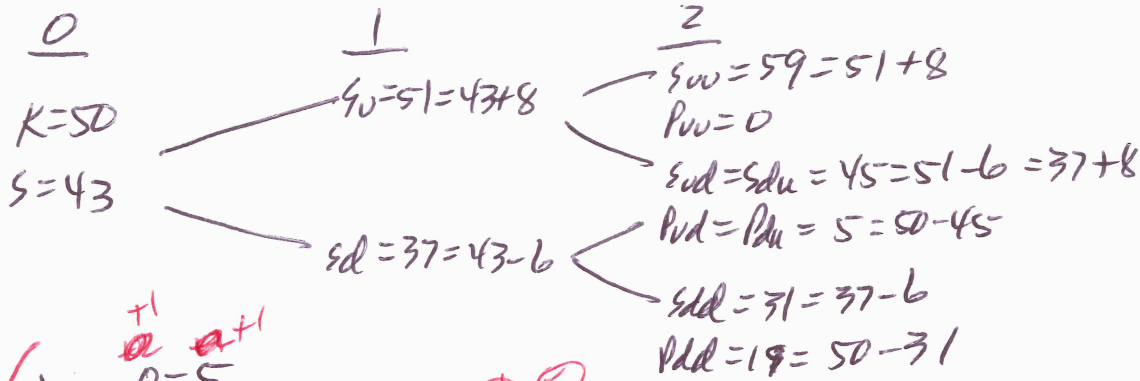 0 1 2
K=50
S=43
Su=51=43+8
Sd=37=43-6
Suu=59=51+8
Puu=0
Sud=Sdu=45=51-6=37+8
Pud=Pdu=5=50-45
Sdd=31=37-6
Pdd=19=50-31
+1 +1
0-5